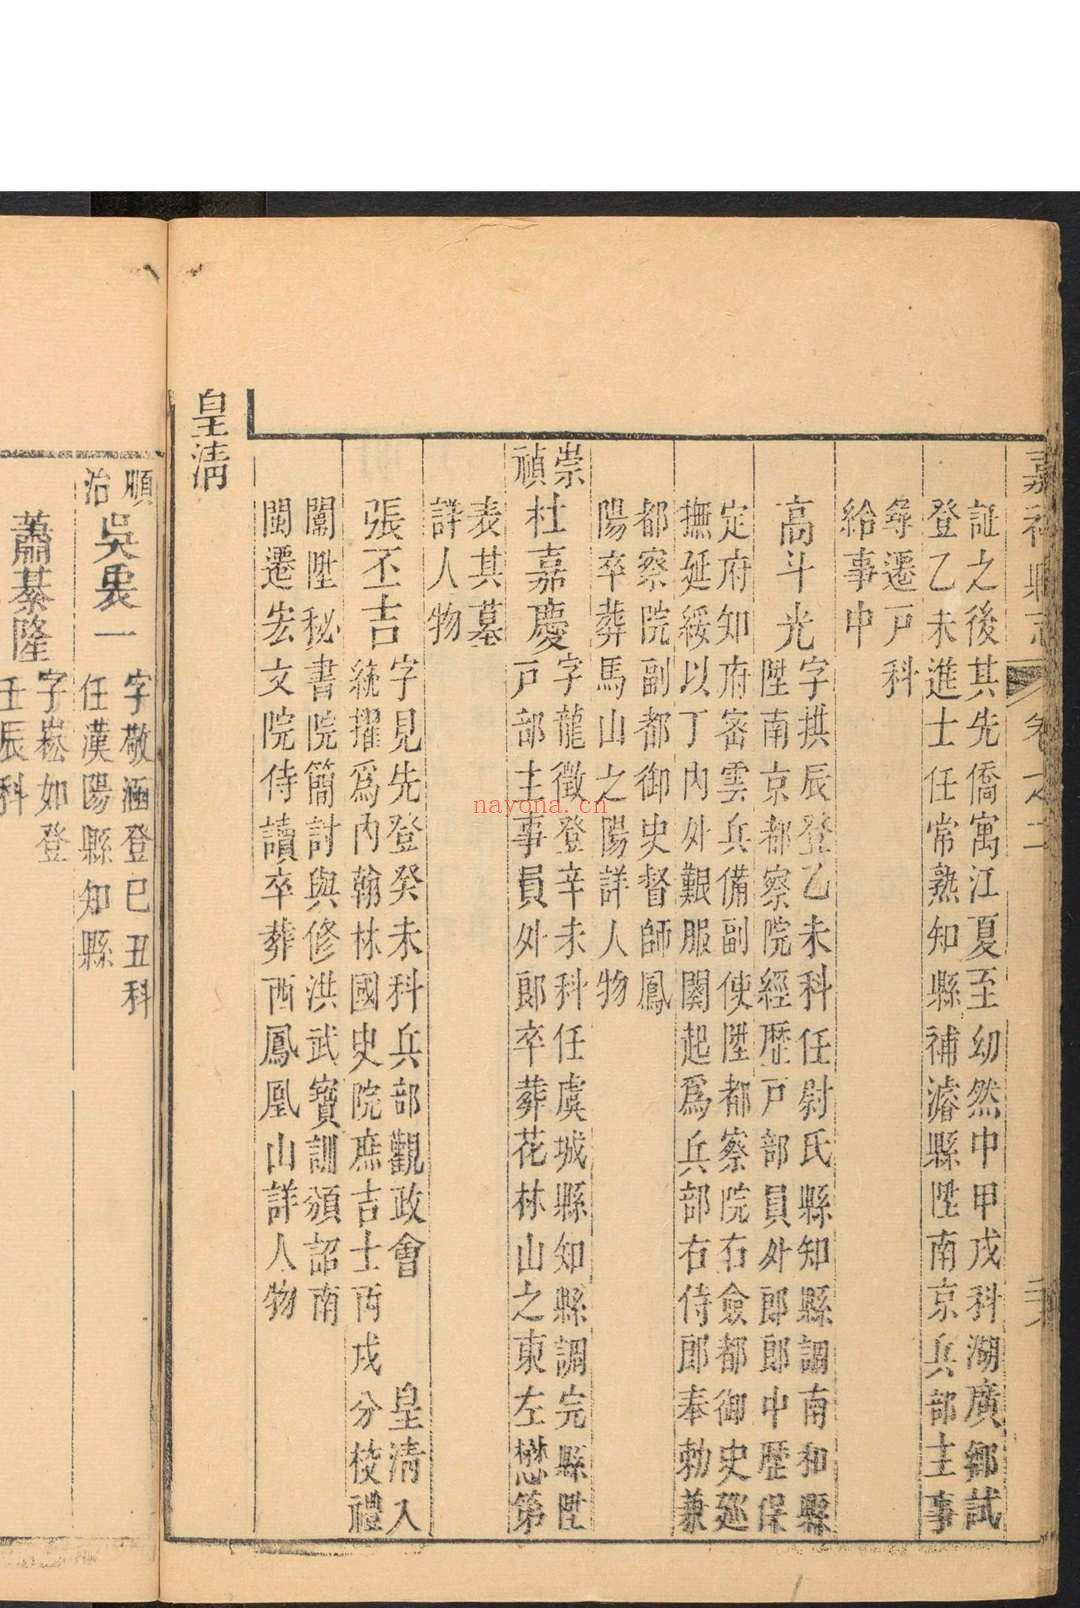 嘉祥縣志 卷之二
証之後其先僑寓江夏至幼然中甲戌科湖廣鄉試
登乙未進士任常熟知縣補濬縣陞南京兵部主事
尋遷戸科
給事中
高斗光
字拱辰登乙未科任尉氏縣知縣調南和縣
陞南京都察院經歴戸部員外郎郎中歴保
定府知府密雲兵備副使陞都察院右僉都御史廵
撫延綏以丁內外艱服闋起爲兵部右侍郎奉勅兼
都察院副都御史督師鳳
陽卒葬馬山之陽詳人物
崇禎
杜嘉慶
字龍徵登辛未科任虞城縣知縣調完縣陞
戸部主事員外郎卒葬花林山之東左懋第
表其墓
詳人物
張丕吉
字見先登癸未科兵部觀政會 皇清入
統擢爲內翰林國史院庶吉士丙戌分校禮
闈陞秘書院簡討與修洪武寶訓頒詔南
閩遷宏文院侍讀卒葬西鳳凰山詳人物
皇清
順治
吳裊一
字敬涵登巳丑科
任漢陽縣知縣
蕭綦隆
字崧如登
壬辰科
nayona.cn